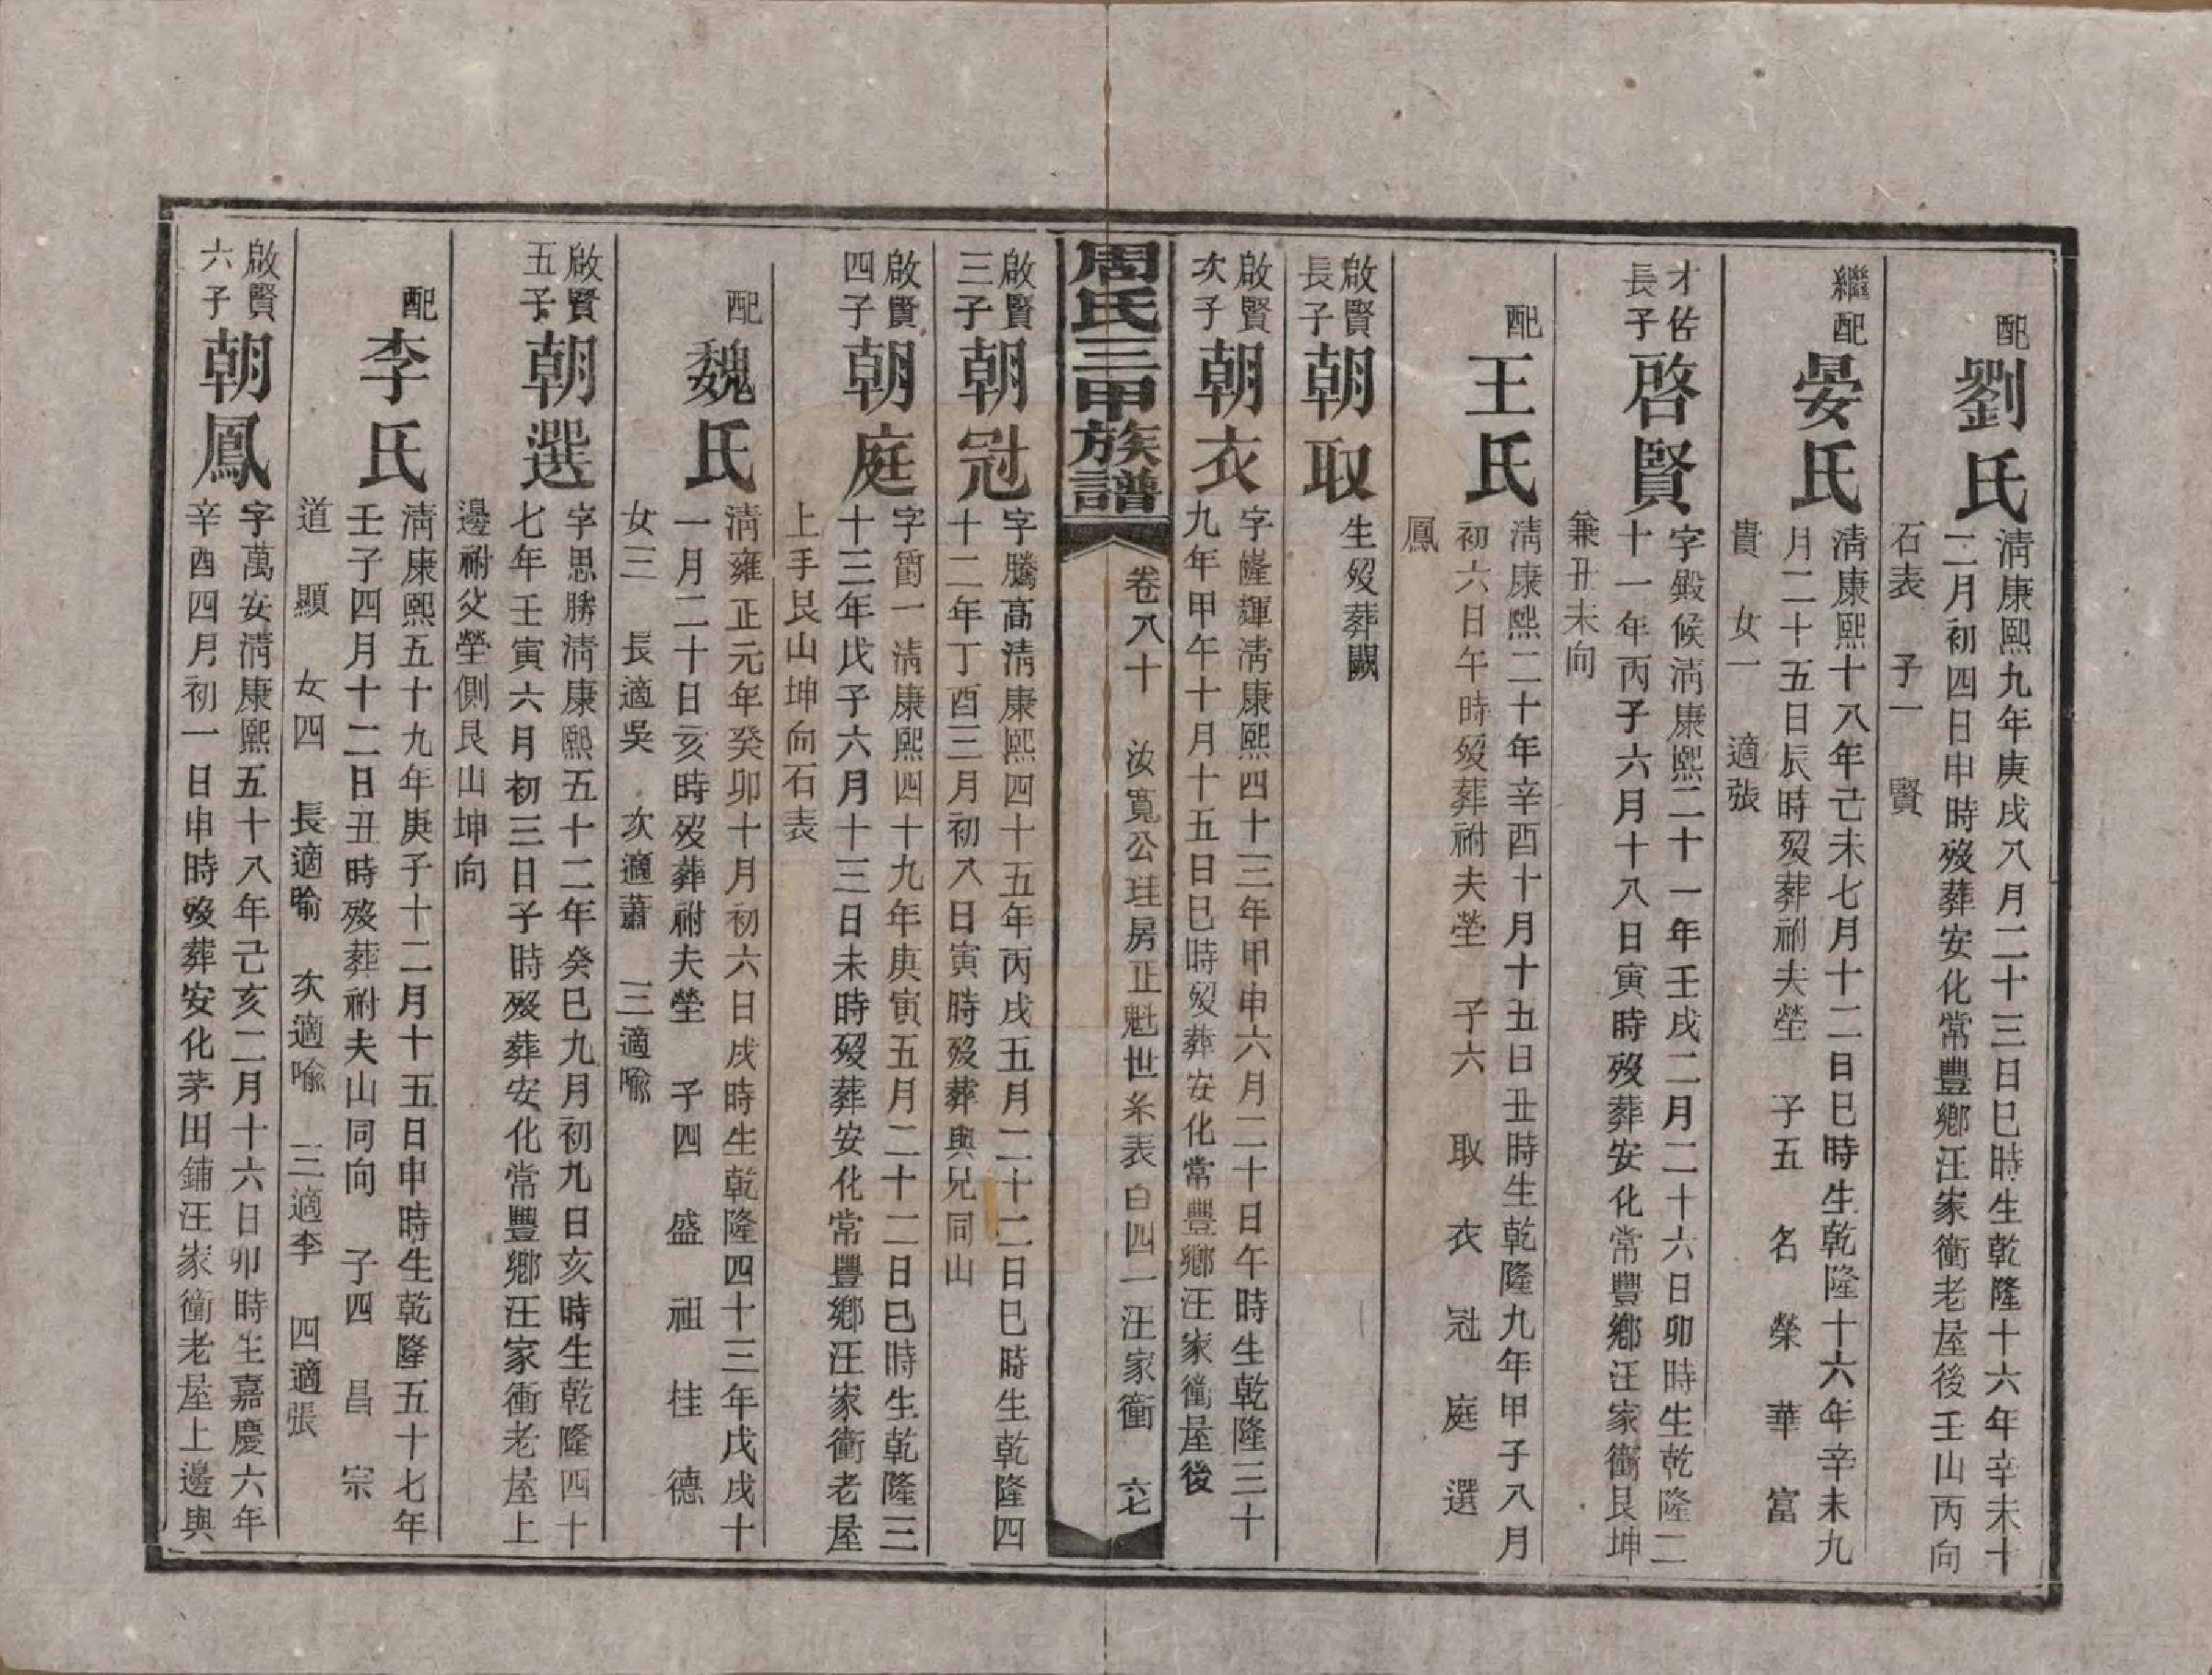 配劉氏
清康熙九年庚戌八月二十三日巳時生乾隆十六年辛未十
二月初四日申時歿葬安化常豐鄉汪家衝老屋後壬山丙向
石表 子一 賢
繼配晏氏
清康熙十八年己未七月十二日巳時生乾隆十六年辛未九
月二十五日辰時歿葬祔夫塋 子五 名 榮 華 富
貴 女一 適張
才佐長子啓賢
字殿候清康熙二十一年壬戌二月二十六日卯時生乾隆二
十一年丙子六月十八日寅時歿葬安化常豐鄉汪家衝艮坤
兼丑未向
配王氏
清康熙二十年辛酉十月十五日丑時生乾隆九年甲子八月
初六日午時歿葬祔夫塋 子六 取 衣 冠 庭 選
鳳
啟賢長子朝取
生歿葬闕
啟賢次子朝衣
字㠉輝清康熙四十三年甲申六月二十日午時生乾隆三十
九年甲午十月十五日巳時歿葬安化常豐鄉汪家衝屋後
周氏三甲族譜
卷八十 汝寬公珪房正魁世系表白四一汪家衝 六七
啟賢三子朝冠
字騰高清康熙四十五年丙戌五月二十二日巳時生乾隆四
十二年丁酉三月初八日寅時歿葬與兄同山
啟賢四子朝庭
字爵一清康熙四十九年庚寅五月二十二日巳時生乾隆三
十三年戊子六月十三日未時歿葬安化常豐鄉汪家衝老屋
上手艮山坤向石表
配魏氏
清雍正元年癸卯十月初六日戌時生乾隆四十三年戊戌十
一月二十日亥時歿葬祔夫塋 子四 盛 祖 桂 德
女三 長適吳 次適蕭 三適喻
啟賢五子朝選
字思勝清康熙五十二年癸巳九月初九日亥時生乾隆四十
七年壬寅六月初三日子時歿葬安化常豐鄉汪家衝老屋上
邊祔父塋側艮山坤向
配李氏
清康熙五十九年庚子十二月十五日申時生乾隆五十七年
壬子四月十二日丑時歿葬祔夫山同向 子四 昌 宗
道 顯 女四 長適喻 次適喻 三適李 四適張
啟賢六子朝鳳
字萬安清康熙五十八年己亥二月十六日卯時生嘉慶六年
辛酉四月初一日申時歿葬安化茅田鋪汪家衝老屋上邊與